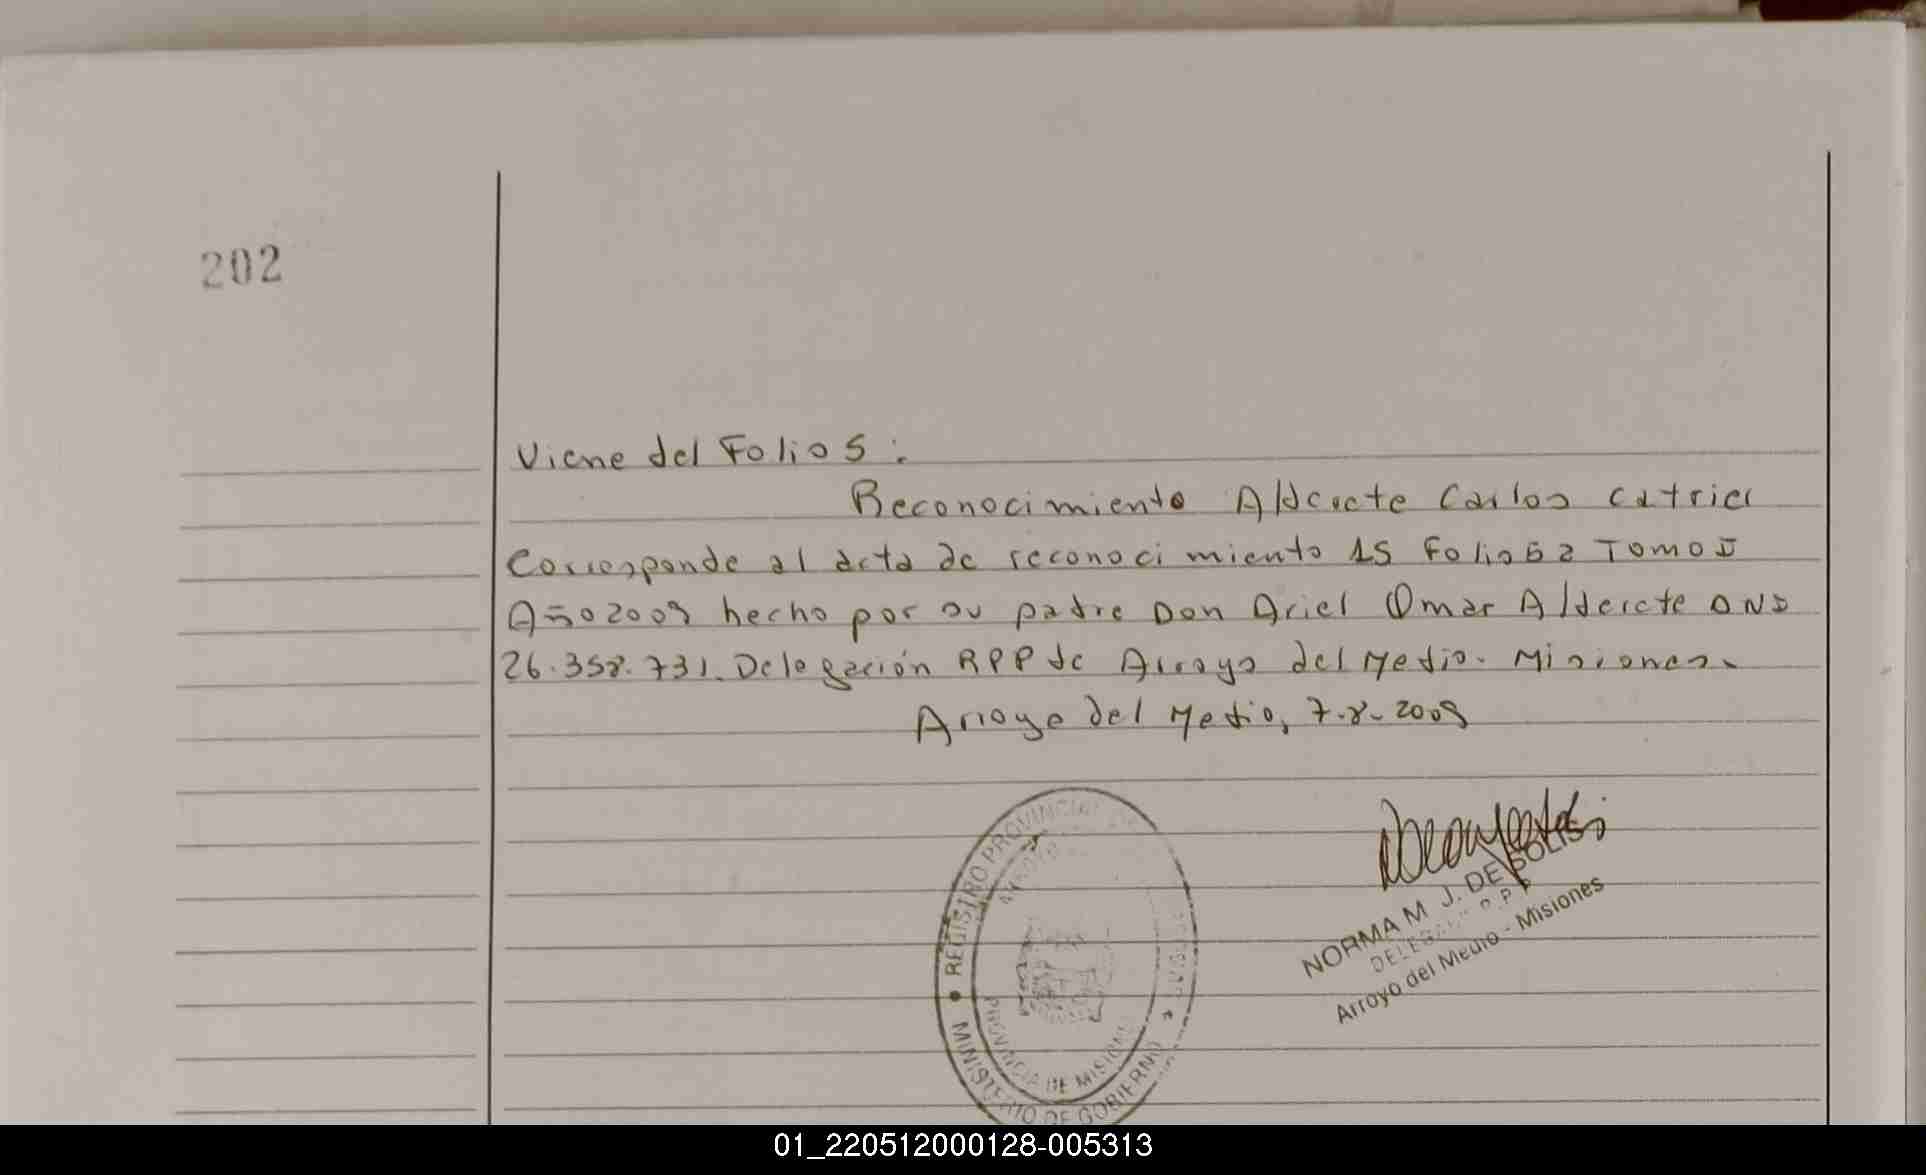 202
Viene del Folio 5:
Reconocimiento Alderete Carlos Catriel
Corresponde al acta de reconocimiento 15 Folio 62 Tomo I
Año 2009 hecho por su padre Don Ariel Omar Alderete DNI
26.358.731. Delegación RPP de Arroyo del Medio. Misiones.
Arroyo del Medio, 7-8-2009
REGISTRO PROVINCIAL DE
ARROYO
PROVINCIA DE MISIONES
MINISTERIO DE GOBIERNO
NORMA M. J. DE SOLIS
Arroyo del Medio - Misiones
01_220512000128-005313